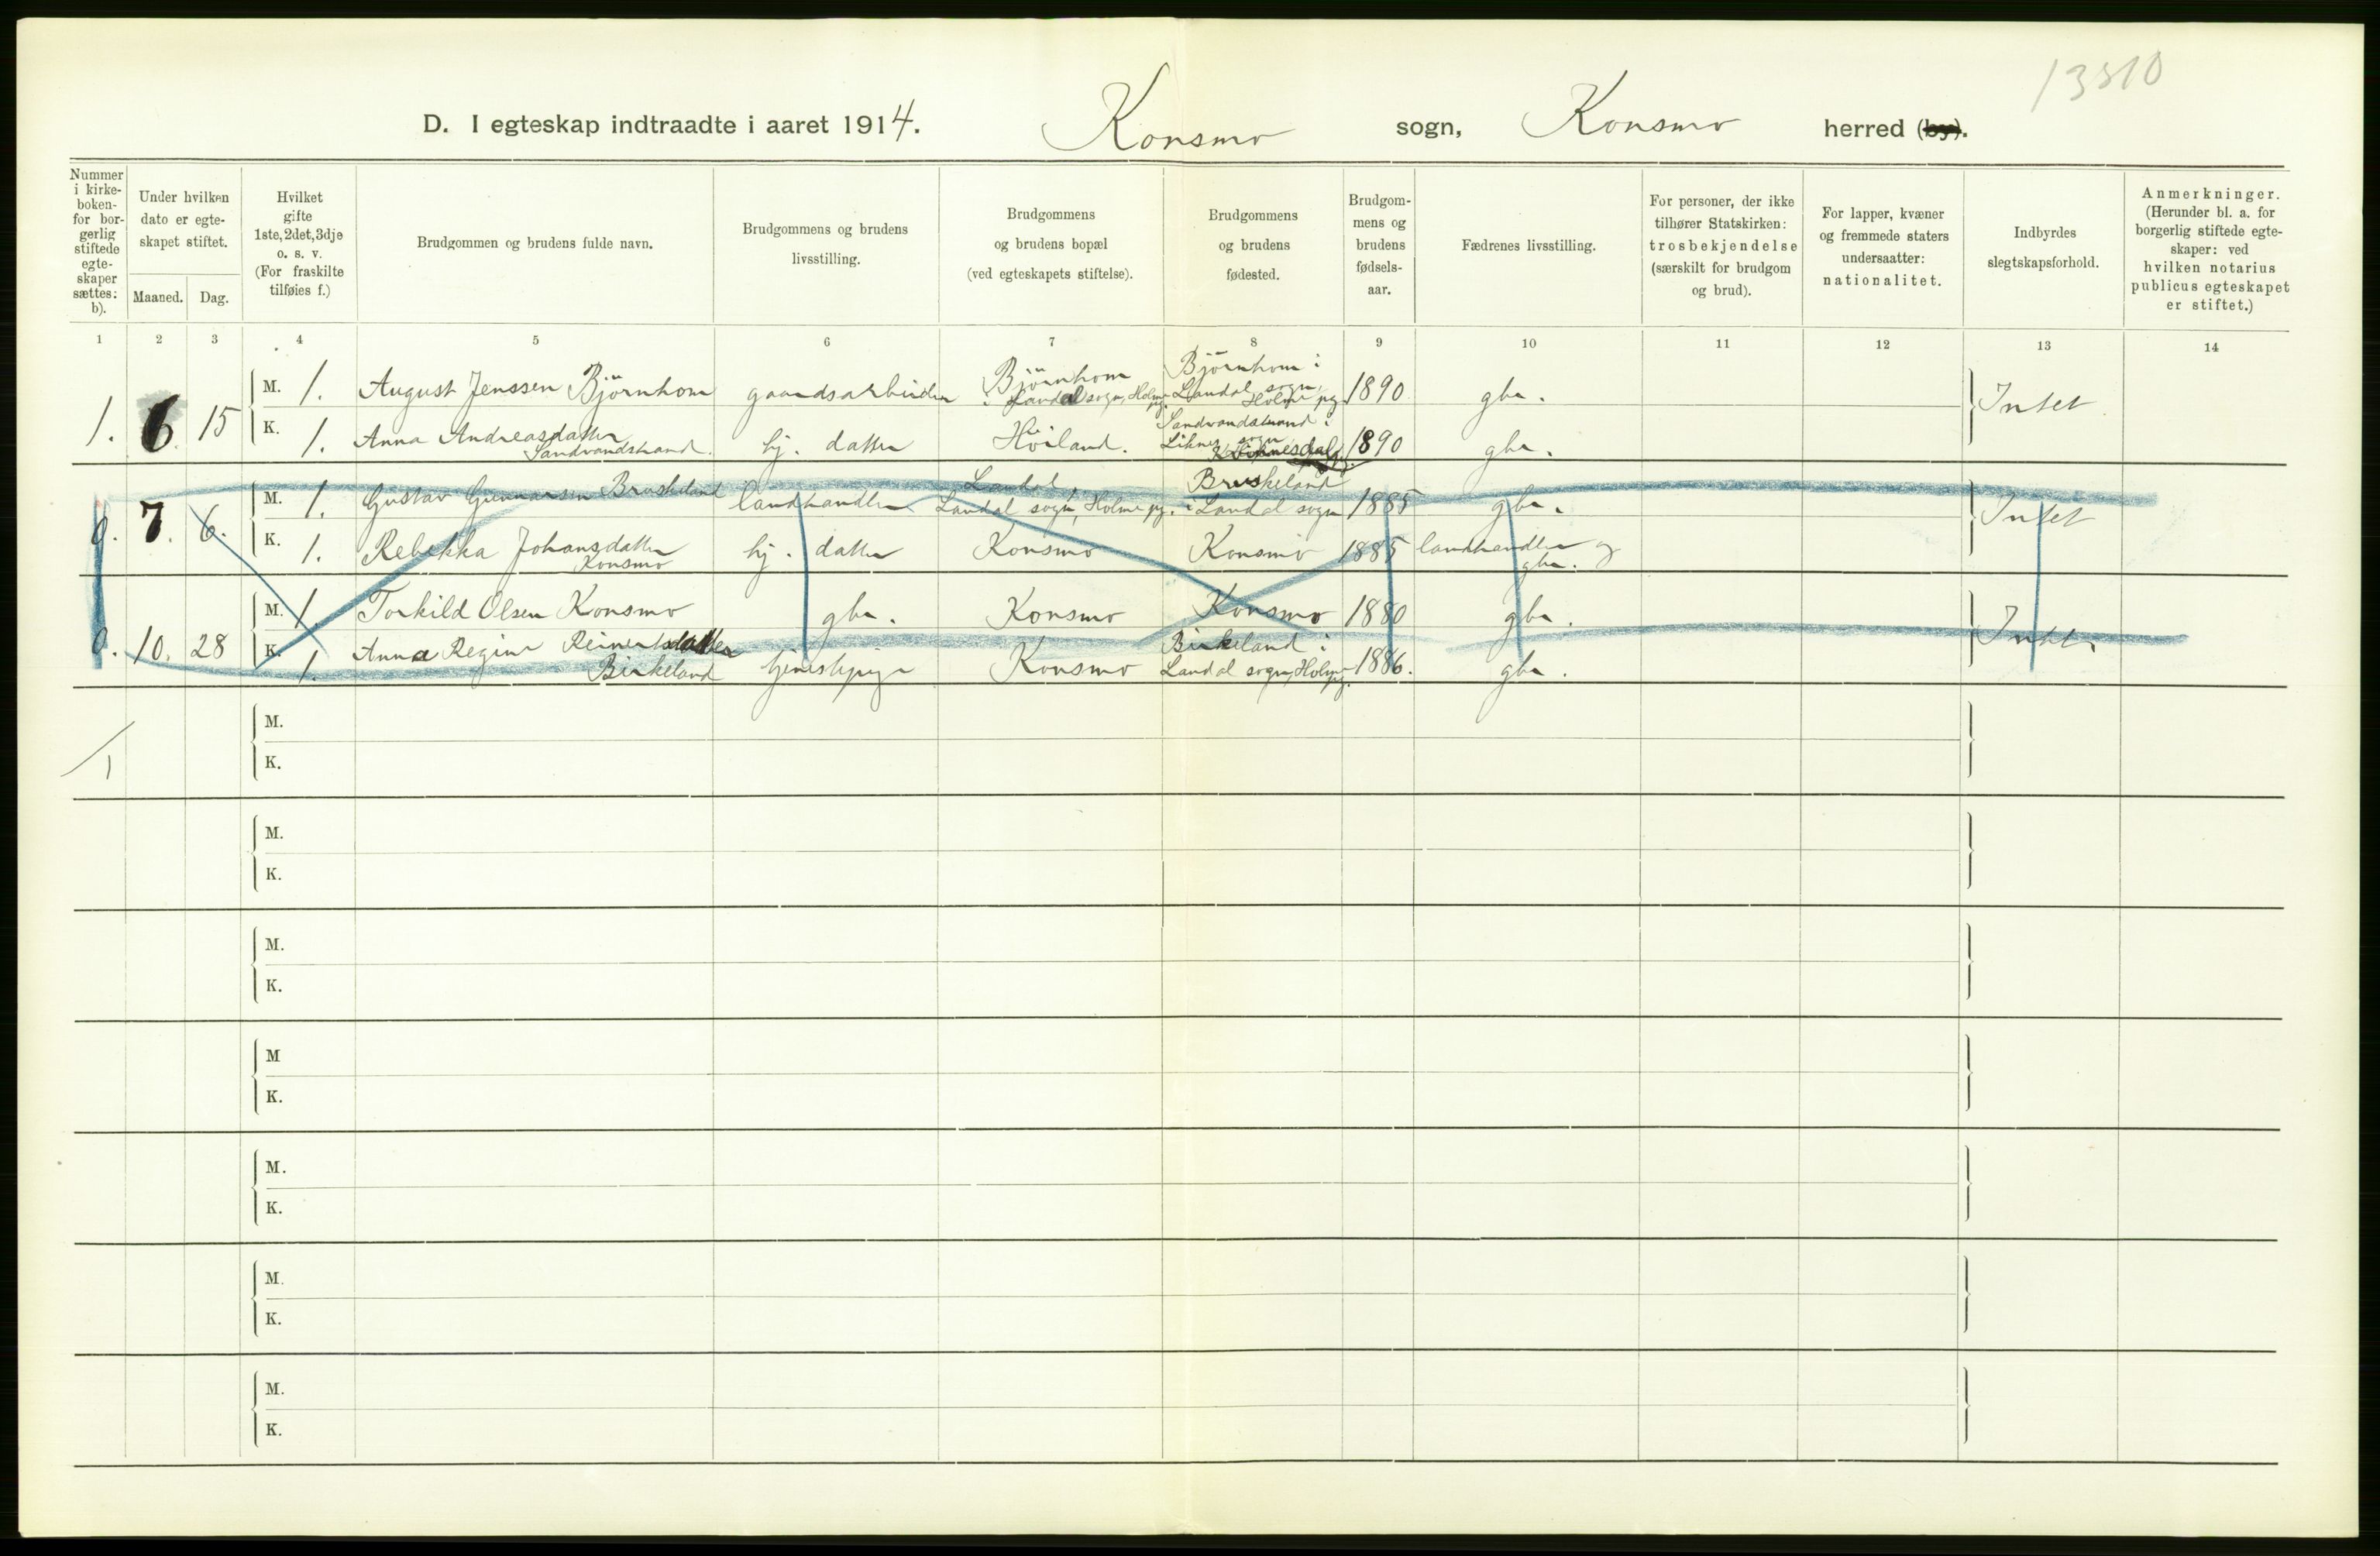 13510
D. I egteskap indtraadte i aaret 1914. Konsmo sogn, Konsmo herred (by).
Nummer i kirke-boken- for bor-gerlig stiftede egte-skaper sættes: b).
Under hvilken dato er egte-skapet stiftet.
Maaned. Dag.
Hvilket gifte 1ste, 2det, 3dje o. s. v. (For fraskilte tilføies f.)
Brudgommen og brudens fulde navn.
Brudgommens og brudens livsstilling.
Brudgommens og brudens bopæl (ved egteskapets stiftelse).
Brudgommens og brudens fødested.
Brudgom-mens og brudens fødsels-aar.
Fædrenes livsstilling.
For personer, der ikke tilhører Statskirken: trosbekjendelse (særskilt for brudgom og brud).
For lapper, kvæner og fremmede staters undersaatter: nationalitet.
Indbyrdes slegtskapsforhold.
Anmerkninger. (Herunder bl. a. for borgerlig stiftede egte-skaper: ved hvilken notarius publicus egteskapet er stiftet.)
1 2 3 4 5 6 7 8 9 10 11 12 13 14
1. 6 15 M. 1. August Jenssen Björnhom gaardsarbeider Björnhom i Landal sogn, Holme pg. Björnhom i Landal sogn, Holme pg. 1890 gbr. Intet
K. 1. Anna Andreasdatter Sandvandstrand. hj. datter Höiland. Sandvandstrand i Liknes sogn 1890 gbr.
0. 7. 6. M. 1. Gustav Gunnarsen Bruskeland landhandler Landal i Landal sogn, Holme pg. Bruskeland i Landal sogn 1885 gbr. Intet
K. 1. Rebekka Johansdatter Konsmo hj. datter Konsmo Konsmo 1885 landhandler og gbr.
0. 10. 28 M. 1. Torkild Olsen Konsmo gbr. Konsmo Konsmo 1880 gbr. Intet.
K. 1. Anna Regine Reinertsdatter Birkeland tjenestepige Konsmo Birkeland i Landal sogn, Holme pg. 1886. gbr.
M.
1
K.
M.
K.
M.
K.
M
K.
M.
K.
M.
K.
M.
K.